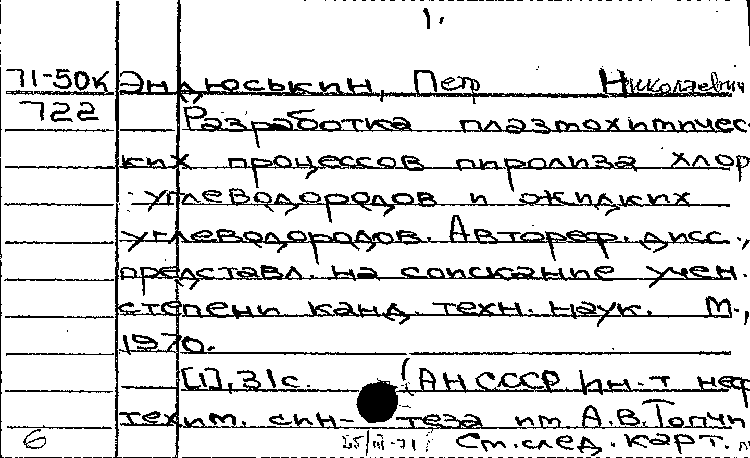 1.
71-50к Эндюськин, Петр Николаевич
722 Разработка плазмохимичес
ких процессов пиролиза хлор
углеводородов и жидких
углеводородов. Автореф. дисс.,
представл. на соискание учен.
степени канд. техн. наук. М.,
1970.
[1], 31с. (АН СССР Ин-т неф
техим. син-теза им. А.В. Топчи
6 25/III-71 См. след. карт.